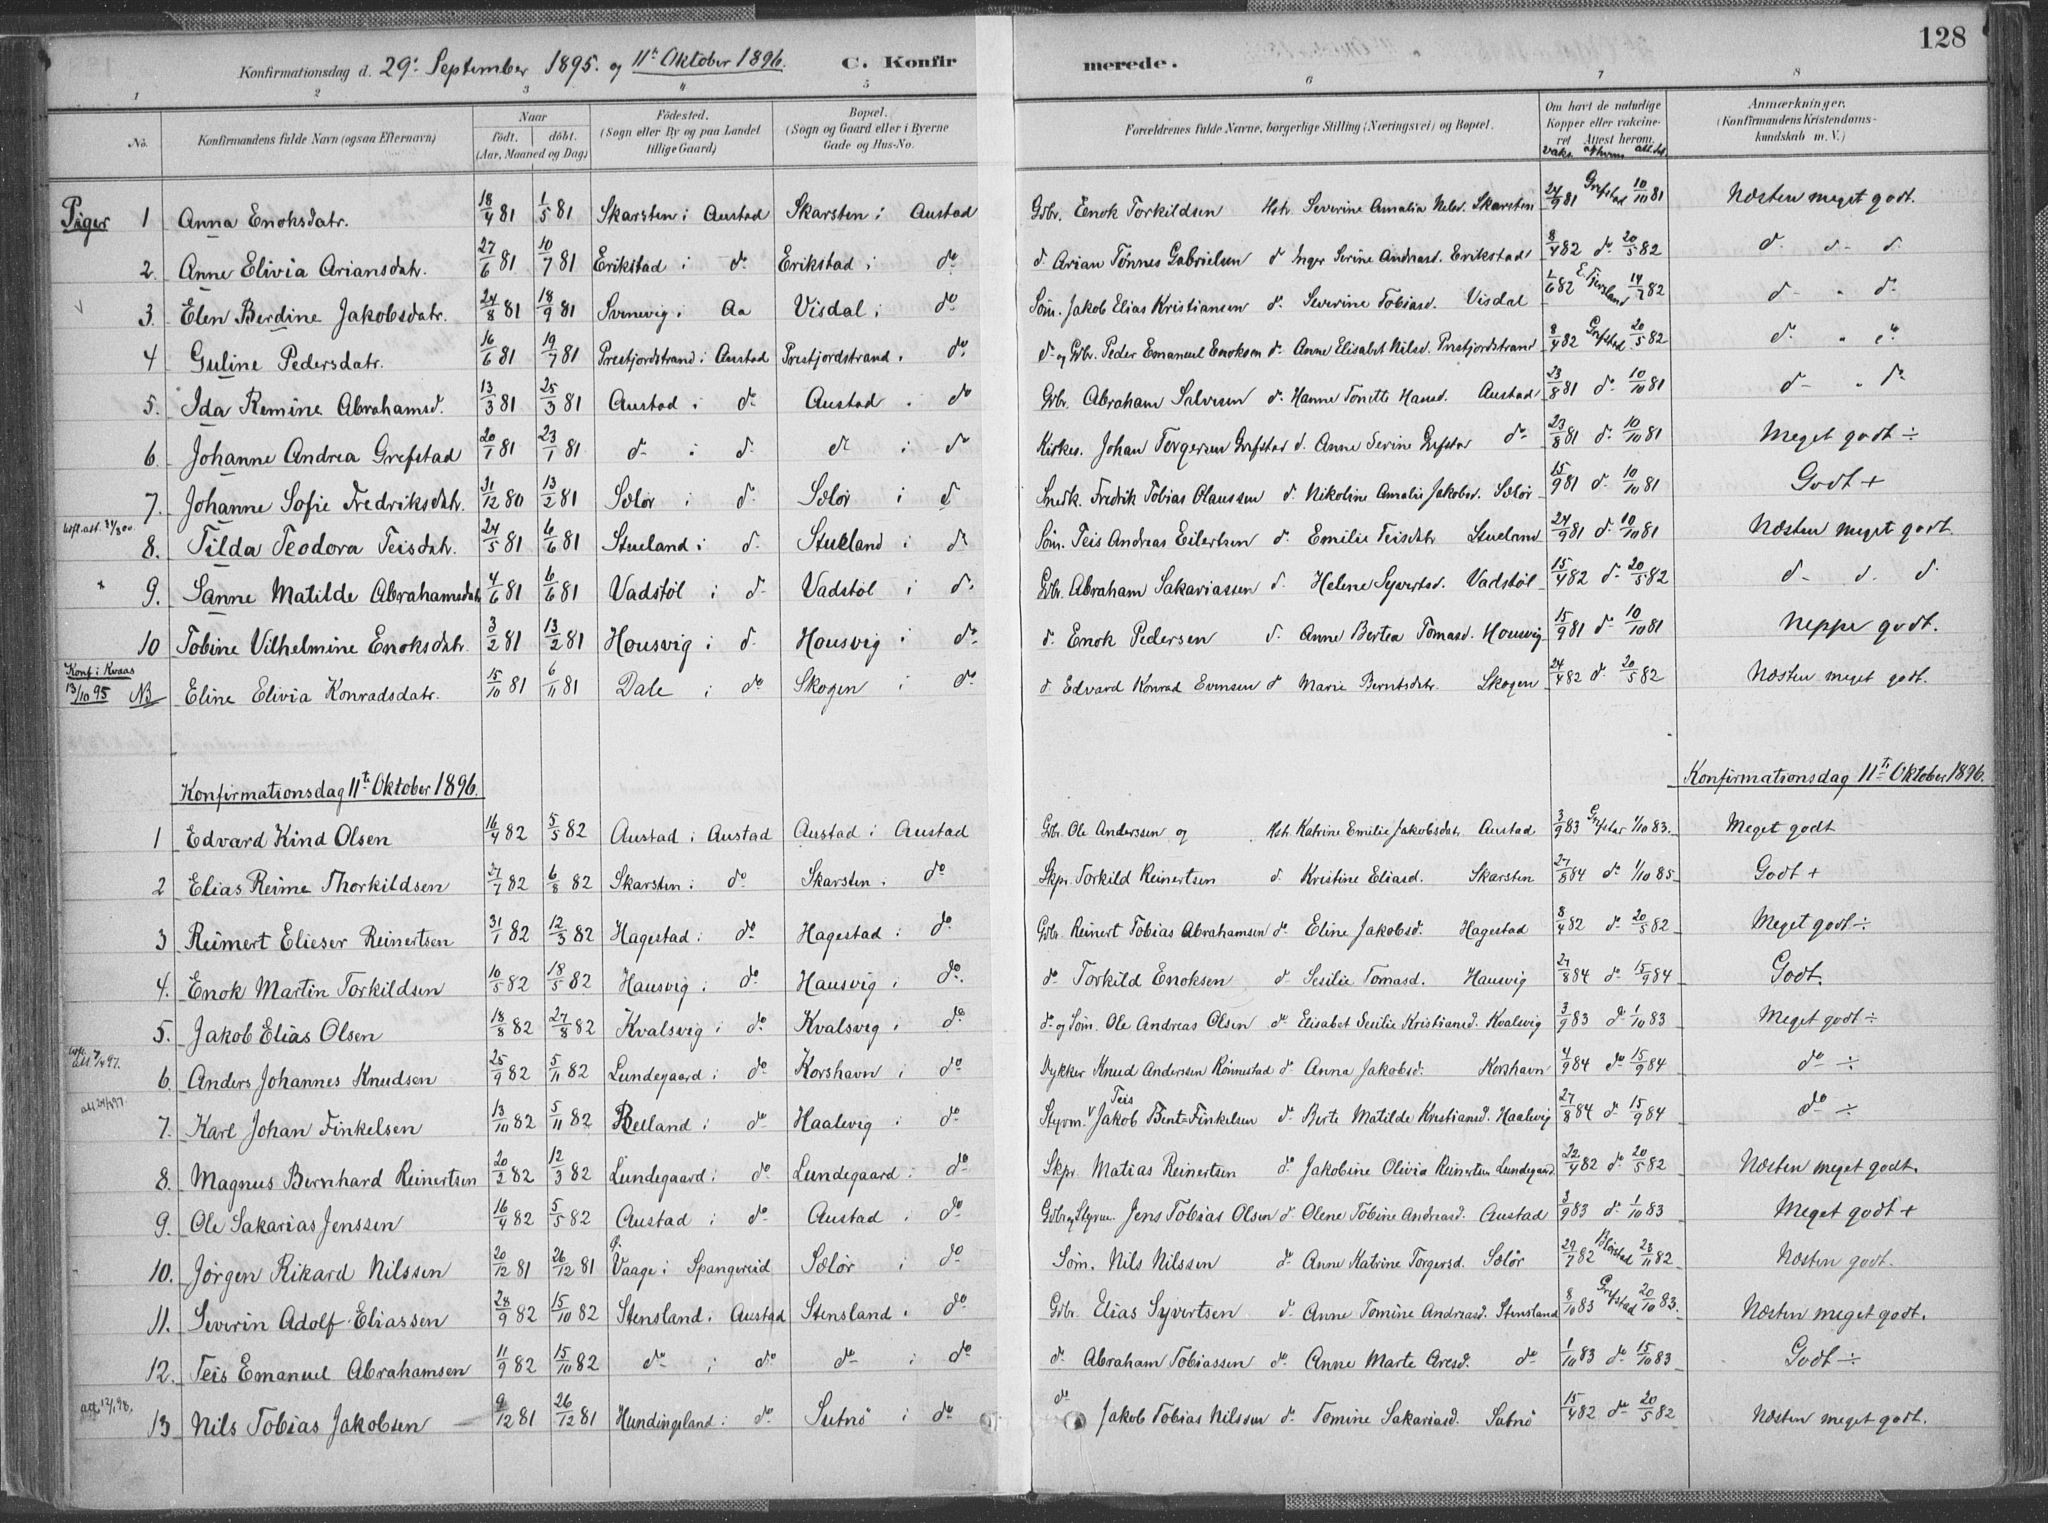 128
Konfirmationsdag d. 29de September 1895. og 11te Oktober 1896. C. Konfirmerede.
1 2 3 4 5 6 7 8
No. Konfirmandens fulde Navn (ogsaa Efternavn) Naar födt. döbt. (Aar, Maaned og Dag) Födested. (Sogn eller By og paa Landet tillige Gaard) Bopæl. (Sogn og Gaard eller i Byerne Gade og Hus-No. Forældrenes fulde Navne, borgerlige Stilling (Næringsvei) og Bopæl. Om havt de naturlige Kopper eller vakcineret Attest herom. Anmærkninger. (Konfirmandens Kristendomskundskab m. V.)
Piger 1 Anna Enoksdatr. 18/4 81 1/5 81 Skarsten i Austad Skarsten i Austad Gbr. Enok Torkildsen Hstr. Severine Amalia Nelsd. Skarsten 24/9 81 Grefstad 10/10 81 Næsten meget godt.
2. Anne Elivia Ariansdatr. 27/6 81 10/7 81 Erikstad i do Erikstad i do d. Arian Tønnes Gabrielsen d. Inger Serine Andreasd. Erikstad 8/4 82 do 20/5 82 d. d. d.
3. Elen Berdine Jakobsdatr. 24/8 81 18/9 81 Svenevig i Aa Visdal i do Søm. Jakob Elias Kristiansen d. Severine Tobiasd. Visdal 1/6 82 E. Fjersland 14/7 82 d. " do
4 Guline Pedersdatr. 16/6 81 19/7 81 Prestfjordstrand i Austad Prestfjordstrand i do. d. og Gbr. Peder Emanuel Enoksen d. Anne Elisabet Nilsd. Prestfjordstrand 8/4 82 Grefstad 20/5 82 d. " do
5. Ida Remine Abrahamsd. 13/3 81 25/3 81 Austad i do Austad i do Gbr. Abraham Salvesen d. Hanne Tonette Hansd. Austad 23/8 81 do 10/10 81 d. " do
6. Johanne Andrea Grefstad 20/1 81 23/1 81 d. i d. d. i d. Kirkes. Johan Torgersen Grefstad d. Anne Serine Grefstad do 23/8 81 d. 10/10 81 Meget godt ÷
7. Johanne Sofie Fredriksdatr. 31/12 80 13/2 81 Sælør i d. Sælør i d Snedk. Fredrik Tobias Olaussen d. Nikoline Amalie Jakobsd. Sælør 15/9 81 d. 10/10 81 Godt +
8. Tilda Teodora Teisdatr. 24/5 81 6/6 81 Stueland i d. Stueland i d. Søm. Teis Andreas Eilertsen d. Emilie Teisdatr Stueland 24/9 81 d. 10/10 81 Næsten meget godt.
" 9. Sanne Matilde Abrahamsdatr 4/6 81 6/6 81 Vadstøl i d. Vadstøl i d. Gbr. Abraham Sakariassen d. Helene Syvertsd. Vadstøl 15/4 82 d. 20/5 82 d. d. d.
10 Tobine Vilhelmine Enoksdatr. 3/2 81 13/2 81 Housvig i d. Housvig i do d. Enok Pedersen d. Anne Bertea Tomasd. Housvig 15/9 81 do 10/10 81 Neppe godt.
Konf. i Kvaas 13/10 95 NB Eline Elivia Konradsdatr. 15/10 81 6/11 81 Dale i do Skogen i do d. Edvard Konrad Evensen d. Marie Berntsdatr. Skogen 24/4 82 d. 20/5 82 Næsten meget godt.
Konfirmationsdag 11te Oktober 1896. Konfirmationsdag 11te Oktober 1896.
1 Edvard Kind Olsen 16/4 82 5/5 82 Austad i Austad Austad i Austad Gbr. Ole Anderssen og Hst. Katrine Emilie Jakobsdatr. Austad 3/9 83 Grefstad 1/10 83. Meget godt
2 Elias Reime Thorkildsen 27/7 82 6/8 82 Skarsten i do Skarsten i do Skpr. Torkild Reinertsen d. Kristine Eliasd. Skarsten 27/8 84 do 1/10 85 Godt +
3 Reimert Elieser Reinertsen 31/1 82 12/3 82 Hagestad i do Hagestad i do Gbr. Reinert Tobias Abrahamsen do Eline Jakobsd. Hagestad 8/4 82 do 20/5 82 Meget godt ÷
4. Enok Martin Torkildsen 10/5 82 18/5 82 Hausvig i do Hausvig i do. do Torkild Enoksen d. Sesilie Tomasd. Hausvig 27/8 84 do 15/9 84 Godt.
5. Jakob Elias Olsen 18/8 82 27/8 82 Kvalsvig i do Kvalsvig i do do og Søm. Ole Andreas Olsen do Elisabet Sesilie Kristiansd. Kvalsvig 3/9 83 do 1/10 83 Meget godt ÷
6. Anders Johannes Knudsen 25/9 82 5/11 82 Lundegaard i do Korshavn i do Dykker Knud Anderssen Rønnestad do Anna Jakobsd. Korshavn 4/9 84 do 15/9 84 do ÷
7. Karl Johan Finkelsen 13/10 82 5/11 82 Relland i do Haalevig i do Styrm. Jakob Teis Bent=Finkelsen d. Berte Matilde Kristiansd. Haalevig 27/8 84 do 15/9 84 do ÷
8. Magnus Bernhard Reinertsen 20/2 82 12/3 82 Lundegaard i do Lundegaard i do Skpr. Matias Reinertsen do Jakobine Olivia Reinertsen Lundegaard 22/4 82 do 20/5 82 Næsten meget godt.
9. Ole Sakarias Jenssen 16/4 82 5/5 82 Austad i do Austad i do Gbr og Styrm. Jens Tobias Olsen do Olene Tobine Andreasd. Austad 3/9 83 do 1/10 83 Meget godt +
10. Jørgen Rikard Nilssen 20/12 81 26/12 81 Vaage i Spangereid Sælør i do Søm. Nils Nilssen do Anne Katrine Torgersd. Sælør 29/7 82 23/11 82 Næsten godt.
11. Severin Adolf Eliassen 28/9 82 15/10 82 Stensland i Austad Stensland i do Gbr. Elias Syvertsen d. Anne Tomine Andreasd. Stensland 8/10 83 Grefstad 20/10 83. Næsten meget godt.
12. Teis Emanuel Abrahamsen 11/9 82 15/10 82 do i do do i do do Abraham Tobiassen do Anne Marte Aresd. do 1/10 83 do 15/10 83 Godt ÷
att. 12/1 98. 13 Nils Tobias Jakobsen 9/12 81 26/12 81 Hundingsland i do Sutnø i do do Jakob Tobias Nilssen do Tomine Sakariasd. Sutnø 15/4 82 do 20/5 82 Næsten meget godt.